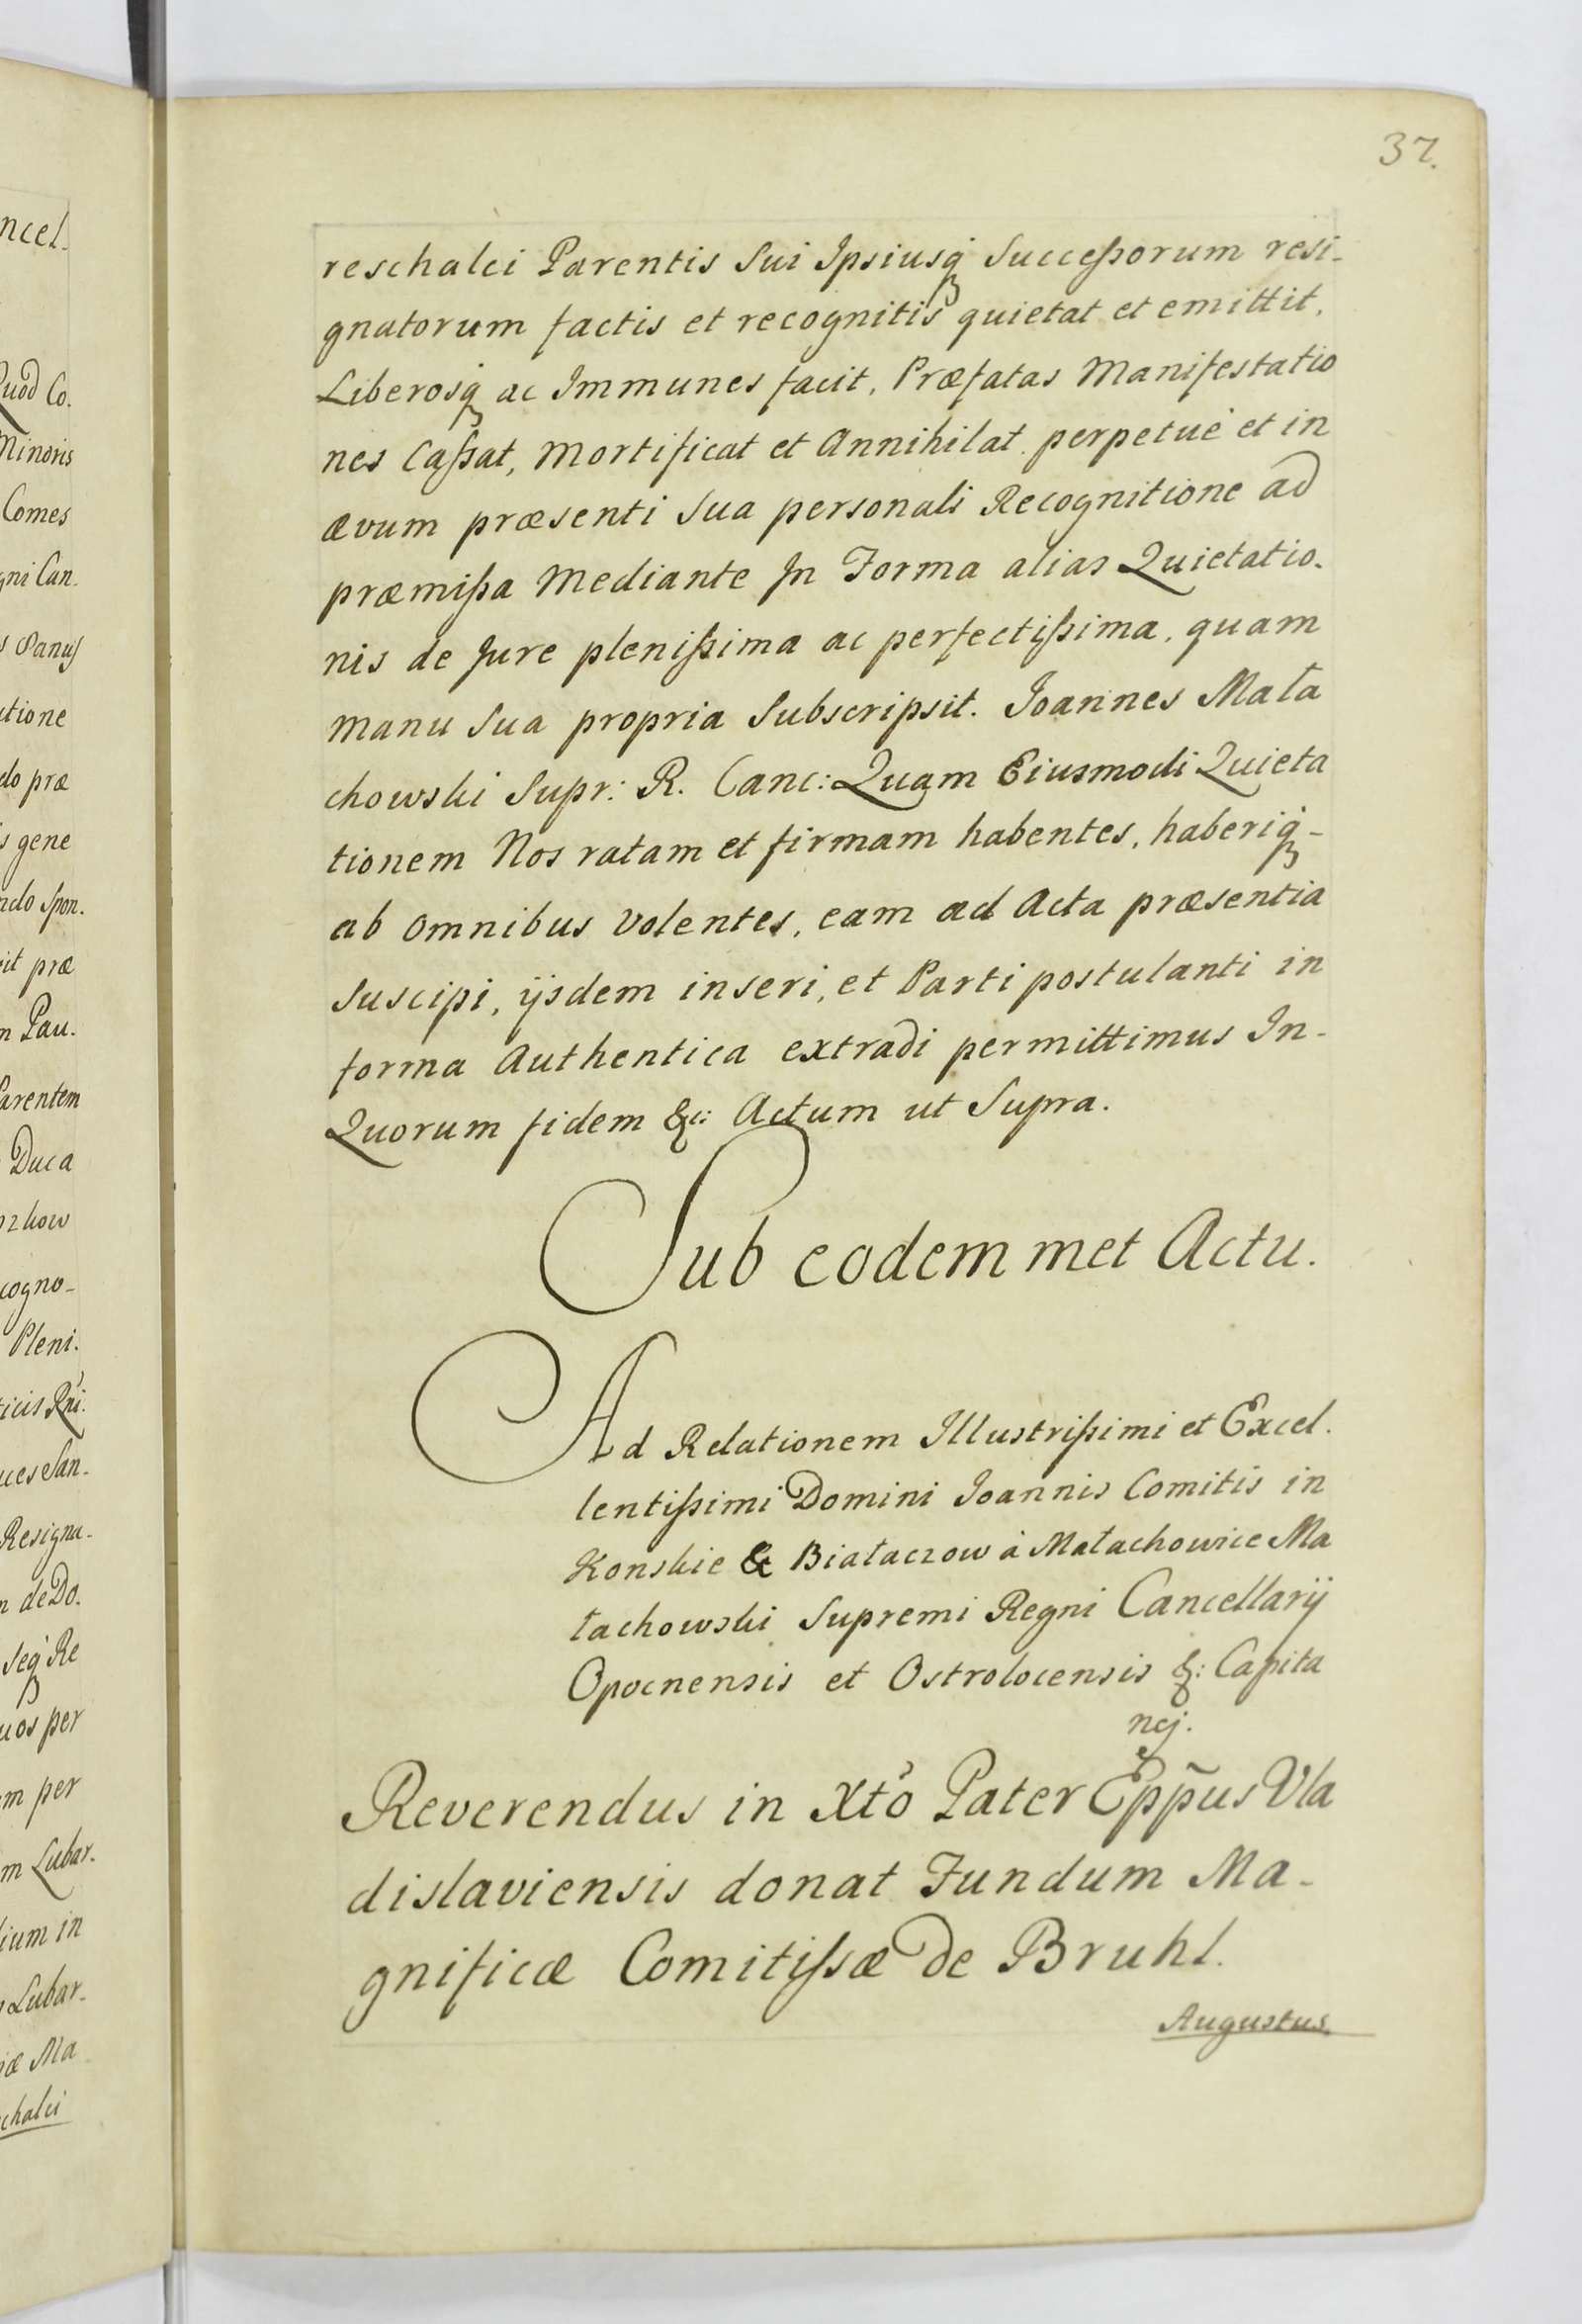 37.
reschalci Parentis Sui Ipsiusq́ Succeßorum resi-
gnatorum factis et recognitis quietat et emittit,
Liberosq́ ac Immunes facit, Præfatas Manifestatio
nes Caßat, Mortificat et Annihilat perpetuè et in
ævum præsenti Sua personali Recognitione ad
præmißa Mediante In Forma alias Quietatio-
nis de Jure plenißima ac perfectißima, quam
manu Sua propria Subscripsit. Joannes Mała
chowski Supr: R. Canc: Quam Eiusmodi Quieta
tionem Nos ratam et firmam habentes, haberiq́-
ab omnibus volentes, eam ad Acta præsentia
Suscipi, ijsdem inseri, et Parti postulanti in
forma Authentica extradi permittimus In-
Quorum fidem &c: Actum ut Supra.
Sub eodem met Actu.
Ad Relationem Illustrißimi et Excel-
lentißimi Domini Joannis Comitis in
Konskie & Białaczow à Małachowice Ma
łachowski Supremi Regni Cancellarij
Opocnensis et Ostrolocensis &: Capita
nej.
Reverendus in Xto Pater Epp̃us Vla
dislaviensis donat Fundum Ma-
gnificæ Comitißæ de Bruhl.
Augustus
ncel.
Quod Co.
Minoris
Comes
gni Can.
utione
do præ
s gene
ndo Spon.
it præ
m Pau.
Parentem
Duca
cogno-
Pleni.
ices San-
Resigna-
n de Do.
Seq́ Re
uos per
em per
m Lubar-
lium in
Lubar-
iæ Ma
chalci